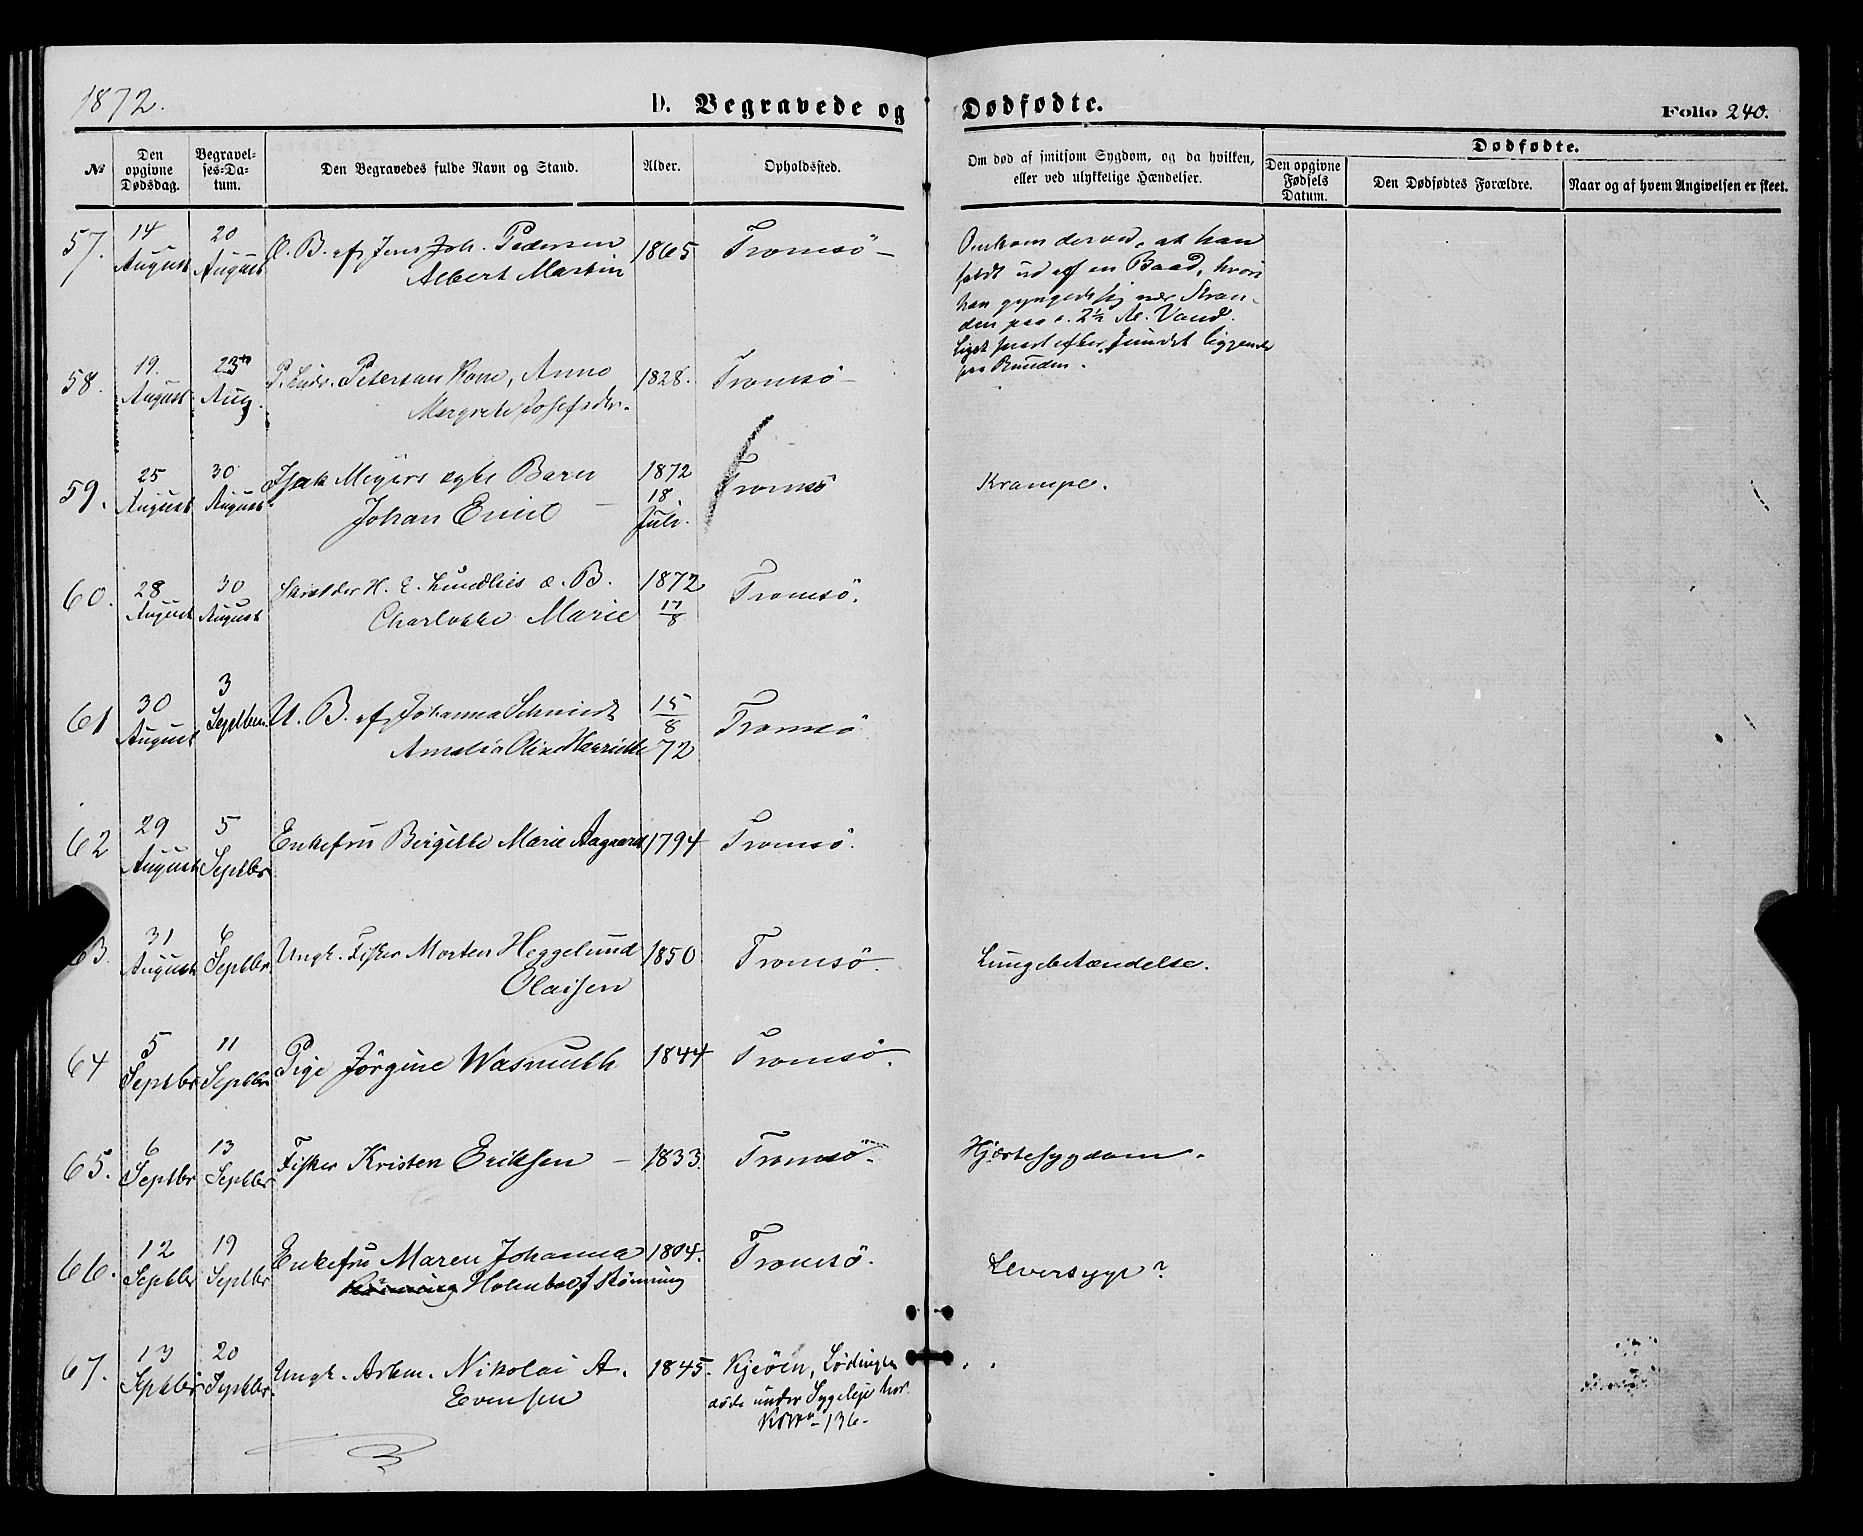 1872.
D. Begravede og Dødfødte.
Folio 240.
№
Den opgivne Dødsdag.
Begravelses-Datum.
Den Begravedes fulde Navn og Stand.
Alder.
Opholdssted.
Om død af smitsom Sygdom, og da hvilken,
eller ved ulykkelige Hændelser.
Dødfødte.
Den opgivne Fødsels Datum.
Den Dødfødtes Forældre.
Naar og af hvem Angivelsen er skeet.
57. 14 August 20 August
B. af Jens Joh. Pedersen 1865 Tromsø
Albert Martin
Omkom derved, at han
faldt ud af en Baad, hvori
han gyngede sig nær Stran-
den paa c. 2½ Al. Vand.
Liget snart efter fundet liggende
paa Bunden.
58. 19. August 23de Aug.
Petersens Kone, Anne 1828. Tromsø
Margrete Josefsdr.
59. 25 August 30 August
Isak Meyers ægte Barn 1872 18 Juli. Tromsø
Johan Emil
Krampe.
60. 28 August 30 August
H. E. Lundlies æ. B. 1872 17/8 Tromsø.
Charlotte Marie
61 30 August 3 Septbr.
U. B. af Johanna Schmidt 15/8 72 Tromsø
Amalia Oline Henriette
62 29 August 5 Septbr
Enkefru Birgitte Marie Aagaard 1794 Tromsø.
63. 31 August 6 Septbr
Ungk. Fisker Morten Heggelund 1850 Tromsø.
Olaisen
Lungebetændelse.
64 5 Septbr 11 Septbr
Pige Jørgine Wasmuth 1844 Tromsø.
65. 6 Septbr 13 Septbr
Fisker Kristen Eriksen 1833. Tromsø.
Hjertesygdom.
66. 12 Septbr 19 Septbr
Enkefru Maren Johanna 1804. Tromsø.
Rønning Holmboe f. Rønning
Leversyge?
67. 13 Septbr 20 Septbr.
Ungk. Arbm. Nikolai A. 1845. Kjeøen, Lødingen
Evensen
døde under Sygeleje her.